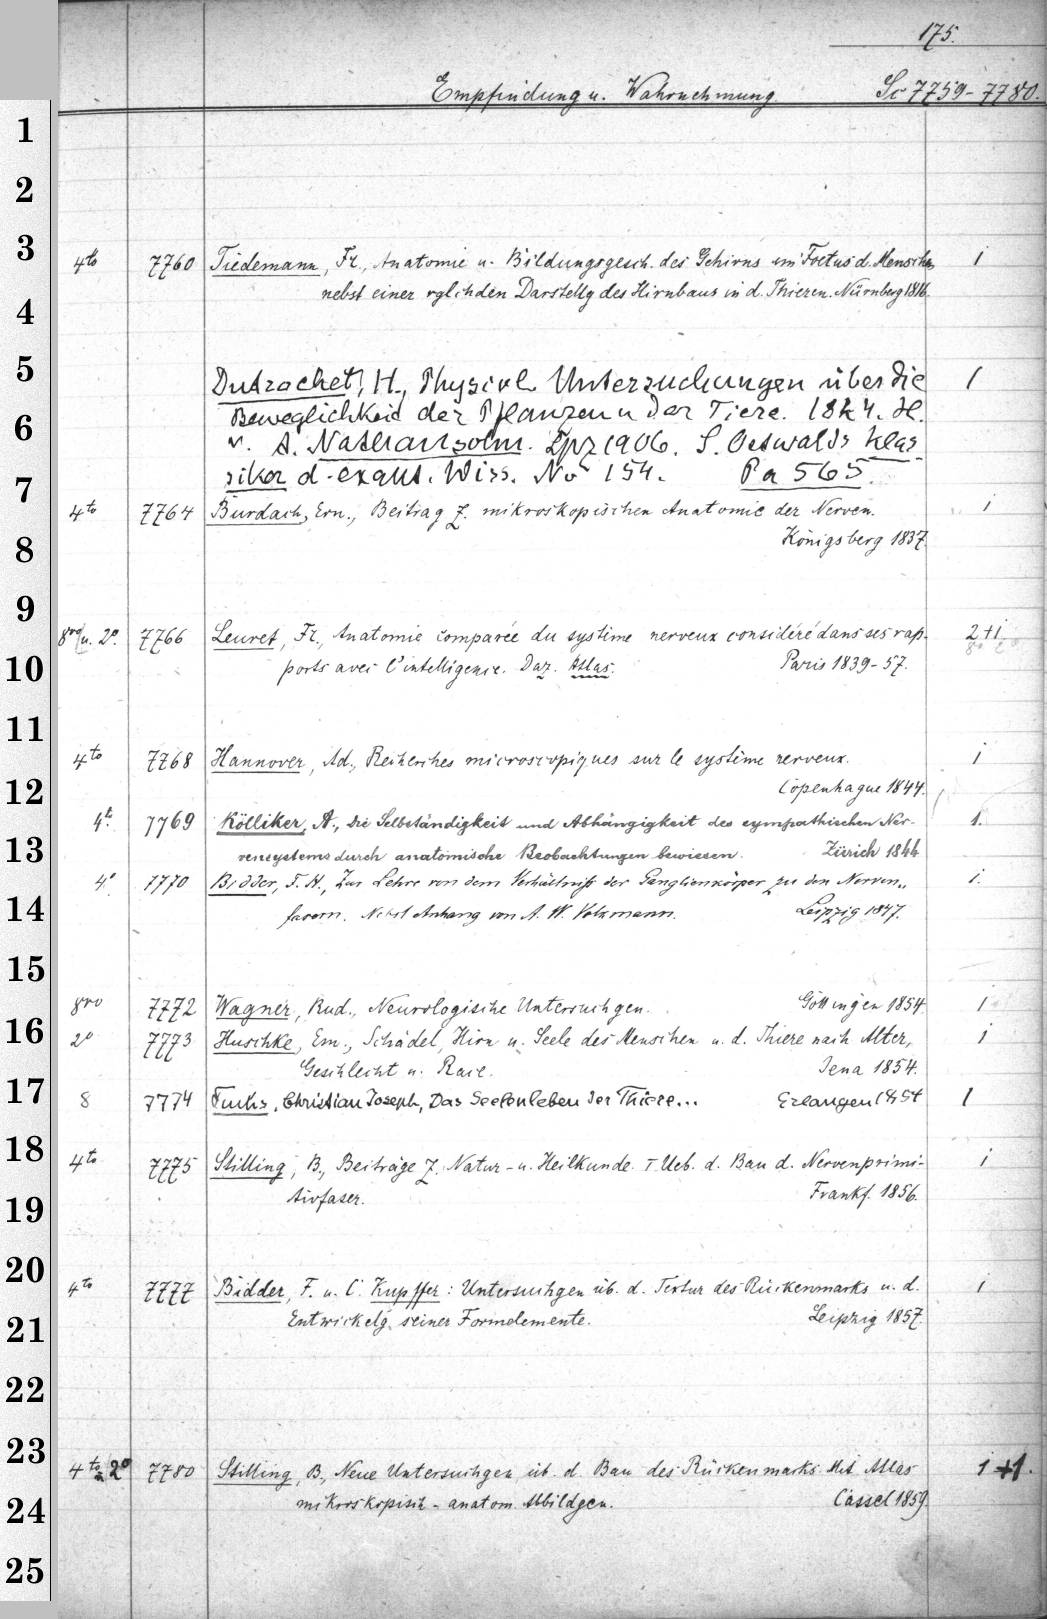 175.
Empfindung u. Wahrnehmung. Sc 7759-7780.
1
2
3
4to 7760 Tiedemann, Fr., Anatomie u. Bildungsgesch. des Gehirns im Foetus d. Menschen 1
nebst einer vglichden Darstellg des Hirnbaus in d. Thieren. Nürnberg 1816.
4
5
Dutrochet, H., Physiol. Untersuchungen über die 1
Beweglichkeit der Pflanzen u der Tiere. 1824. H.
6
v. A. Nathansohn. Lpz 1906. S. Ostwalds Klas
siker d. exakt. Wiss. No 154. Pa 565.
7
4to 7764 Burdach, Ern., Beitrag z. mikroskopischen Anatomie der Nerven. 1
Königsberg 1837.
8
9
8vo u. 2o. 7766 Leuret, Fr., Anatomie comparée du système nerveux considéré dans ses rap- 2+1
ports avec l'intelligence. Daz. Atlas. Paris 1839-57.
10
11
4to 7768 Hannover, Ad., Recherches microscopiques sur le système nerveux. 1
Copenhague 1844.
12
4t. 7769 Kölliker, A., Die Selbständigkeit und Abhängigkeit des sympathischen Ner- 1.
vensystems durch anatomische Beobachtungen bewiesen. Zürich 1844
13
4o 7770 Bidder, F. H., Zur Lehre von dem Verhältniß der Ganglienkörper zu den Nerven„ 1.
fasern. Nebst Anhang von A. W. Volkmann. Leipzig 1847.
14
15
8vo 7772 Wagner, Rud., Neurologische Untersuchgen. Göttingen 1854. 1
16
2o 7773 Huschke, Em., Schädel, Hirn u. Seele des Menschen u. d. Thiere nach Alter, 1
Geschlecht u. Race. Jena 1854.
17
8 7774 Fuchs, Christian Joseph, Das Seelenleben der Thiere... Erlangen 1854 1
18
4to 7775 Stilling, B., Beiträge z. Natur- u. Heilkunde. I Ueb. d. Bau d. Nervenprimi- 1
tivfaser. Frankf. 1856.
19
20
4to 7777 Bidder, F. u. C. Kupffer: Untersuchgen üb. d. Textur des Rückenmarks u. d. 1
Entwickelg. seiner Formelemente. Leipzig 1857.
21
22
23
4to u 2o 7780 Stilling, B., Neue Untersuchgen üb. d. Bau des Rückenmarks. Mit Atlas 1+1.
mikroskopisch-anatom. Abbildgen. Cassel 1859.
24
25